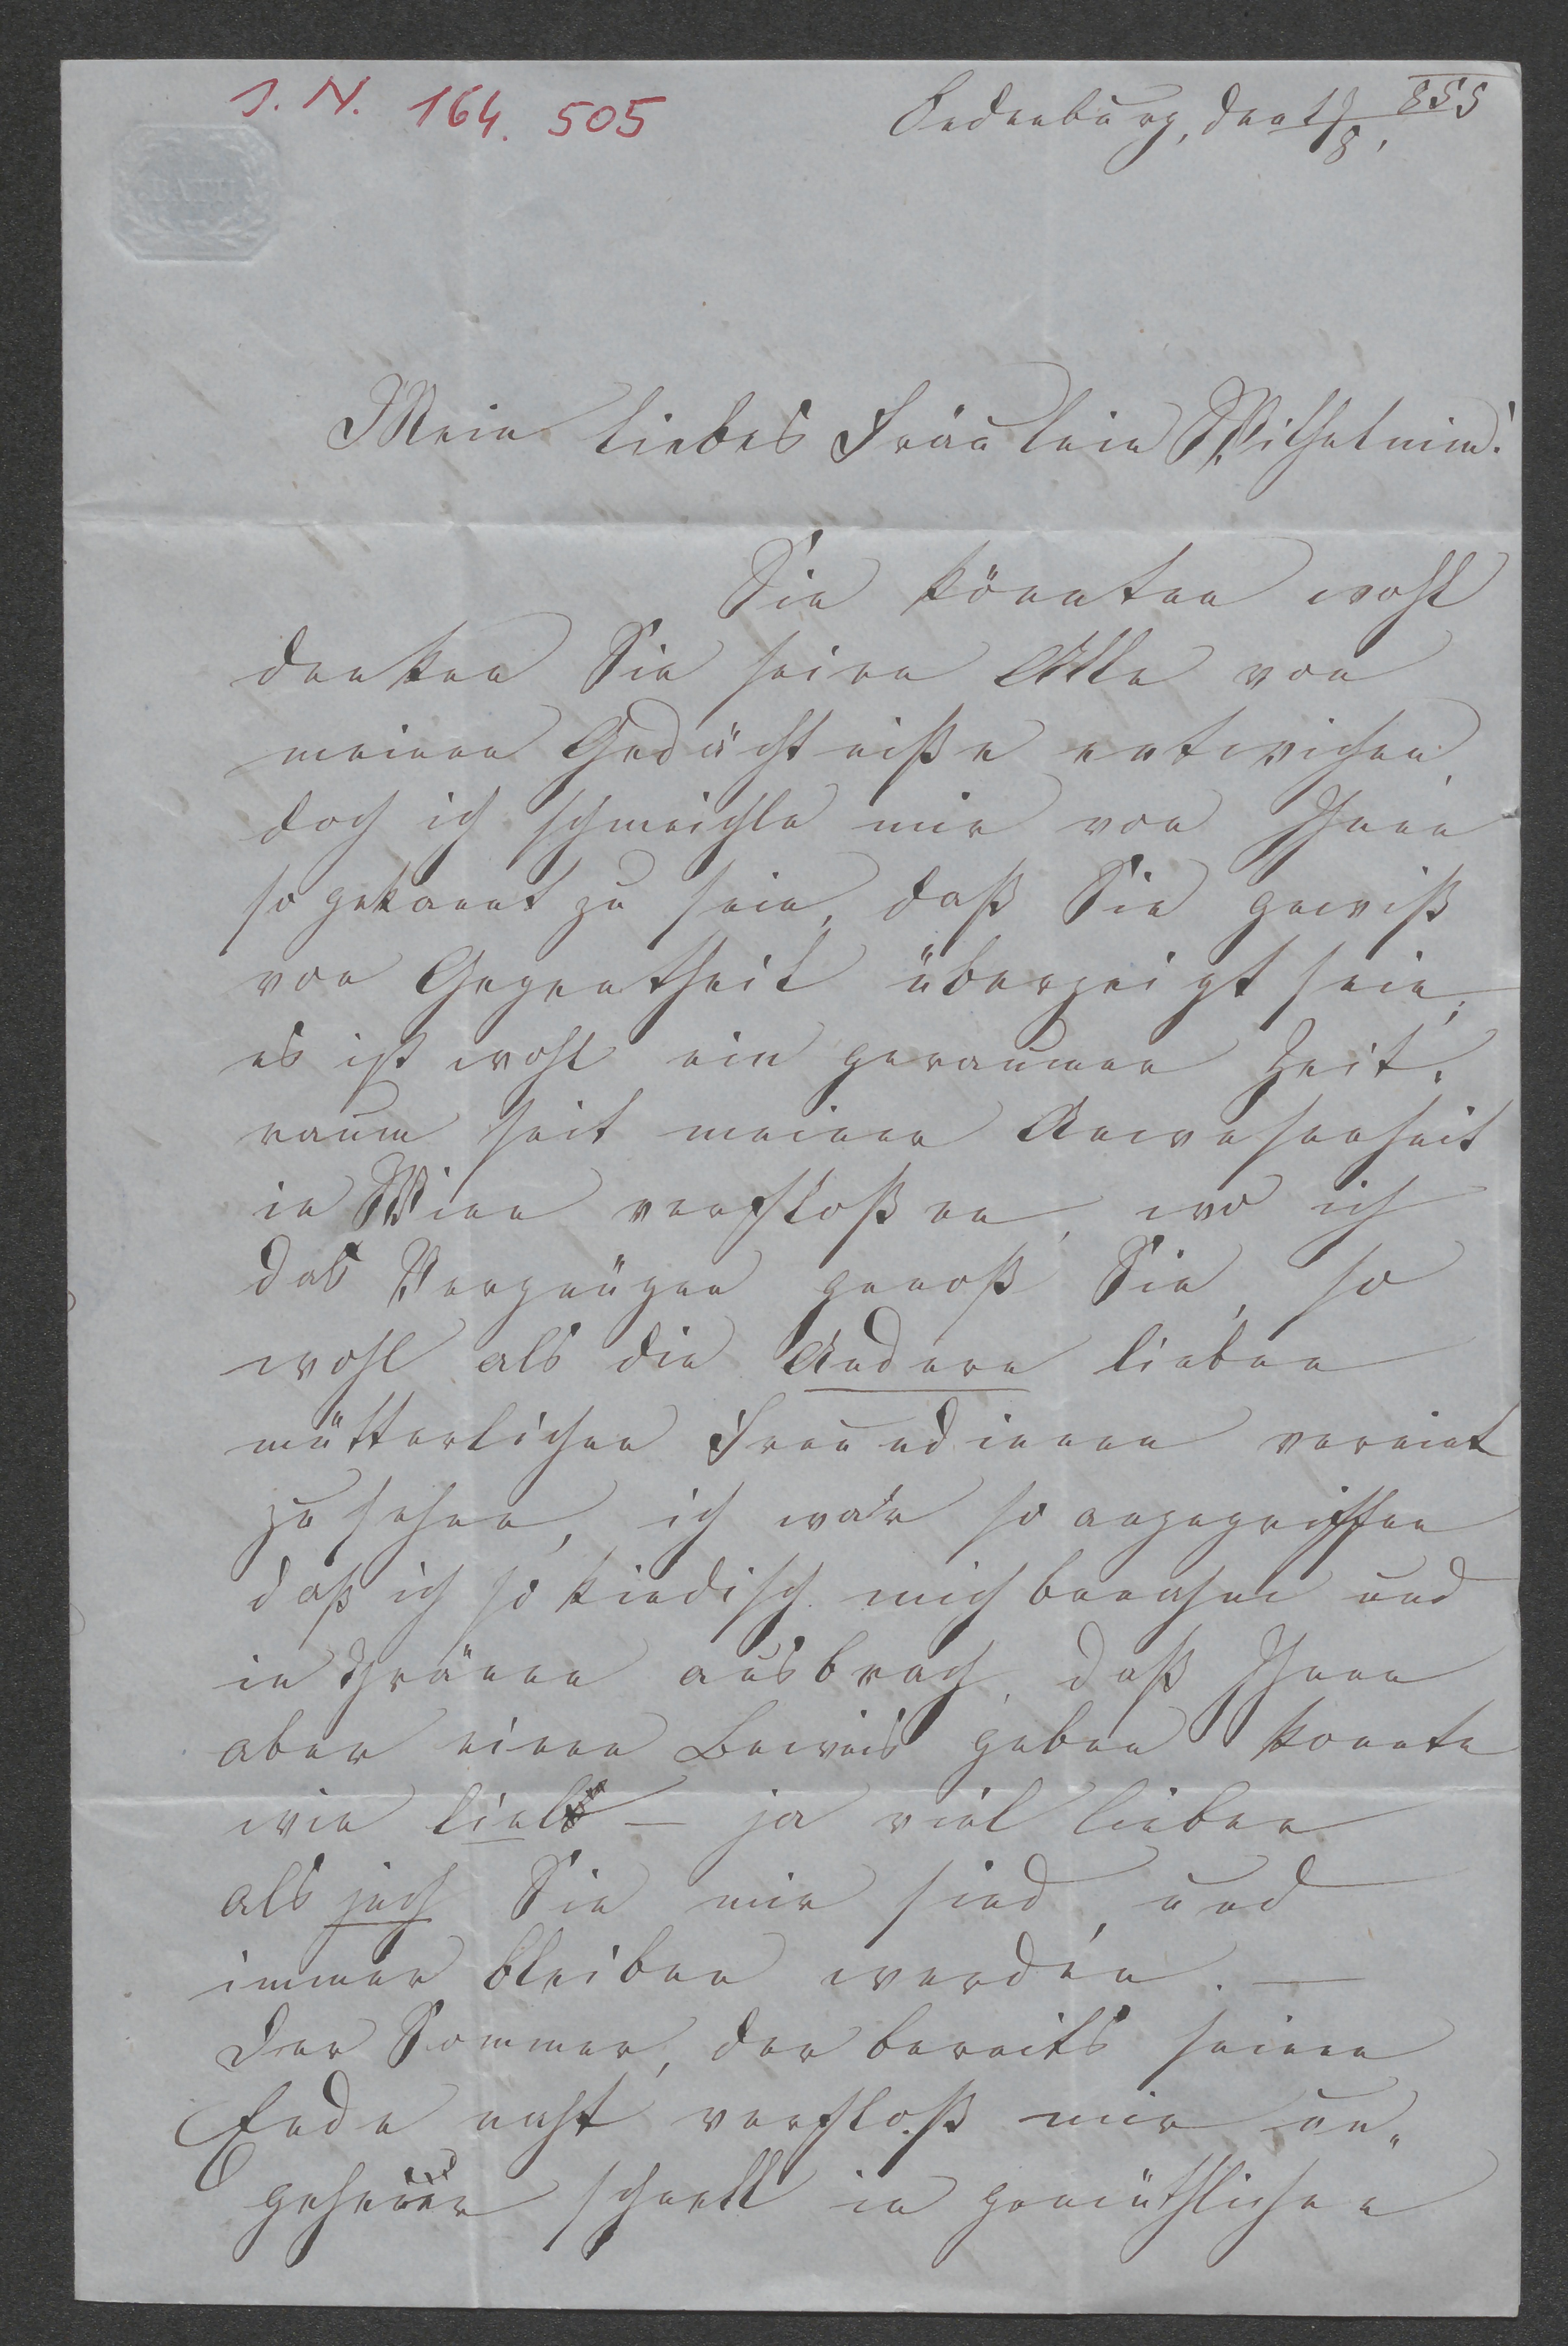 J. N. 164. 505
Oedenburg, den 17/8. 855
BATH
Mein liebes Fräulein Wilhelmin!
Sie könnten wohl
denken Sie seien Alle von
meinen Gedächtniße entwichen,
doch ich schmeichle mir von Ihnen
so gekannt zu sein, daß Sie gewiß
von Gegentheil überzeigt sein;
es ist wohl ein geraumer Zeit-
raum seit meiner Anwesenheit
in Wien verfloßen, wo ich
das Vergnügen genoß Sie, so
wohl als die Andern lieben
mütterlichen Freundinnen vereint
zu sehen, ich war so angegriffen
daß ich so kindisch mich benahm und
in Thränen ausbrach, daß Ihnen
aber einen Beweis geben konnte
wie lieb – ja viel lieber
als ich Sie mir sind, und
immer bleiben werden. –
Der Sommer, der bereits seinen
Ende naht verfloß mir un-
geheuer schnell in gemüthlichen